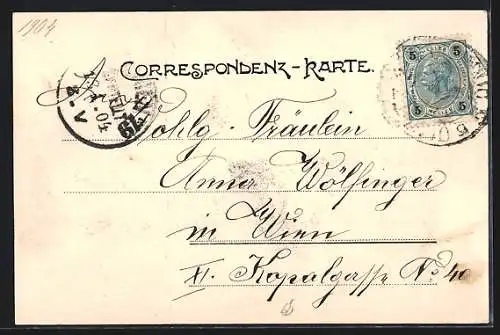 1904
CORRESPONDENZ-KARTE.
5 5
5 5
04
4.V
Wohlg. Fräulein
Anna Wölfinger
in Wien
XI. Kopalgasse No 40